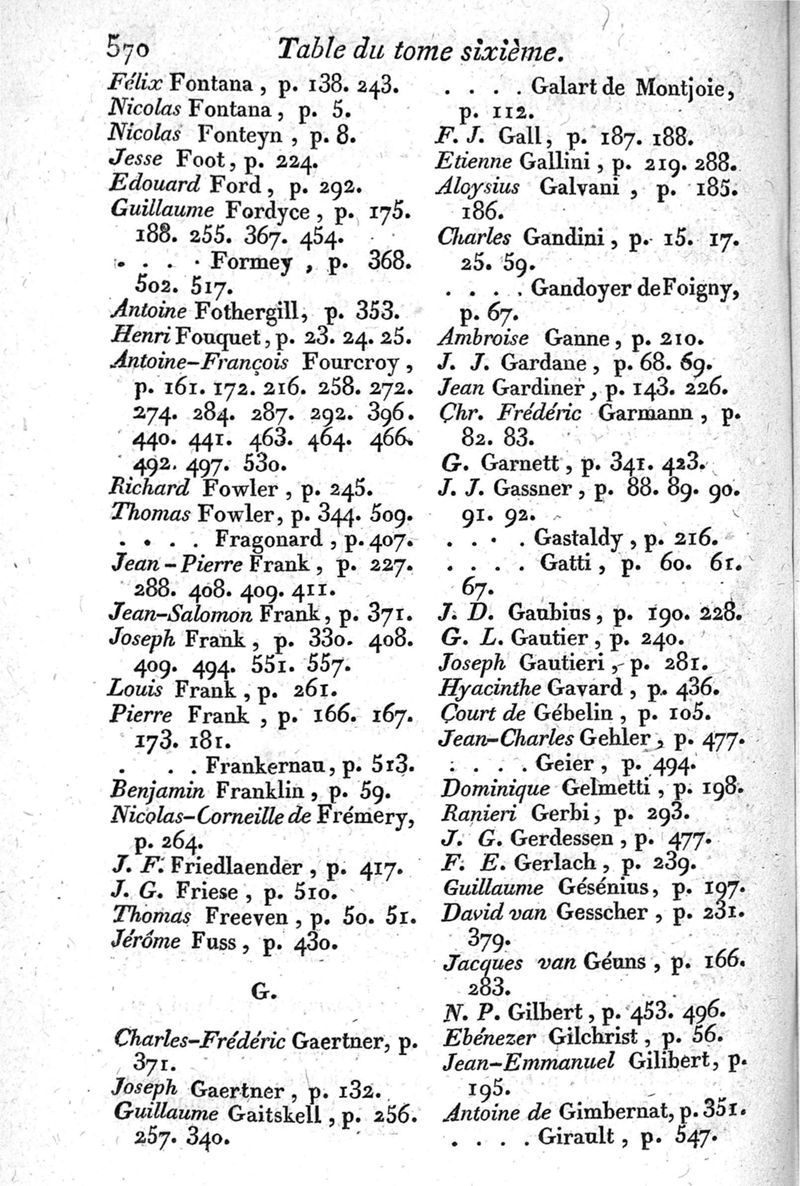 570
Table du tome sixième.
Félix Fontana, p. 138. 243.
Nicolas Fontana, p. 5.
Nicolas Fonteyn, p. 8.
Jesse Foot, p. 224.
Edouard Ford, p. 292.
Guillaume Fordyce, p. 175.
188. 255. 367. 454.
. . . . Formey, p. 368.
502. 517.
Antoine Fothergill, p. 353.
Henri Fouquet, p. 23. 24. 25.
Antoine-François Fourcroy,
p. 161. 172. 216. 258. 272.
274. 284. 287. 292. 396.
440. 441. 463. 464. 466.
492. 497. 530.
Richard Fowler, p. 245.
Thomas Fowler, p. 344. 509.
. . . . Fragonard, p. 407.
Jean-Pierre Frank, p. 227.
288. 408. 409. 411.
Jean-Salomon Frank, p. 371.
Joseph Frank, p. 330. 408.
409. 494. 551. 557.
Louis Frank, p. 261.
Pierre Frank, p. 166. 167.
173. 181.
. . . Frankernau, p. 513.
Benjamin Franklin, p. 59.
Nicolas-Corneille de Frémery,
p. 264.
J. F. Friedlaender, p. 417.
J. G. Friese, p. 510.
Thomas Freeven, p. 50. 51.
Jérôme Fuss, p. 430.
G.
Charles-Frédéric Gaertner, p.
371.
Joseph Gaertner, p. 132.
Guillaume Gaitskell, p. 256.
257. 340.
. . . . Galart de Montjoie,
p. 112.
F. J. Gall, p. 187. 188.
Etienne Gallini, p. 219. 288.
Aloysius Galvani, p. 185.
186.
Charles Gandini, p. 15. 17.
25. 59.
. . . . Gandoyer de Foigny,
p. 67.
Ambroise Ganne, p. 210.
J. J. Gardane, p. 68. 69.
Jean Gardiner, p. 143. 226.
Chr. Frédéric Garmann, p.
82. 83.
G. Garnett, p. 341. 423.
J. J. Gassner, p. 88. 89. 90.
91. 92.
. . . . Gastaldy, p. 216.
. . . . Gatti, p. 60. 61.
67.
J. D. Gaubius, p. 190. 228.
G. L. Gautier, p. 240.
Joseph Gautieri, p. 281.
Hyacinthe Gavard, p. 436.
Court de Gébelin, p. 105.
Jean-Charles Gehler, p. 477.
. . . . Geier, p. 494.
Dominique Gelmetti, p. 198.
Ranieri Gerbi, p. 293.
J. G. Gerdessen, p. 477.
F. E. Gerlach, p. 239.
Guillaume Gésénius, p. 197.
David van Gesscher, p. 231.
379.
Jacques van Géuns, p. 166.
283.
N. P. Gilbert, p. 453. 496.
Ebénezer Gilchrist, p. 56.
Jean-Emmanuel Gilibert, p.
195.
Antoine de Gimbernat, p. 351.
. . . . Girault, p. 547.